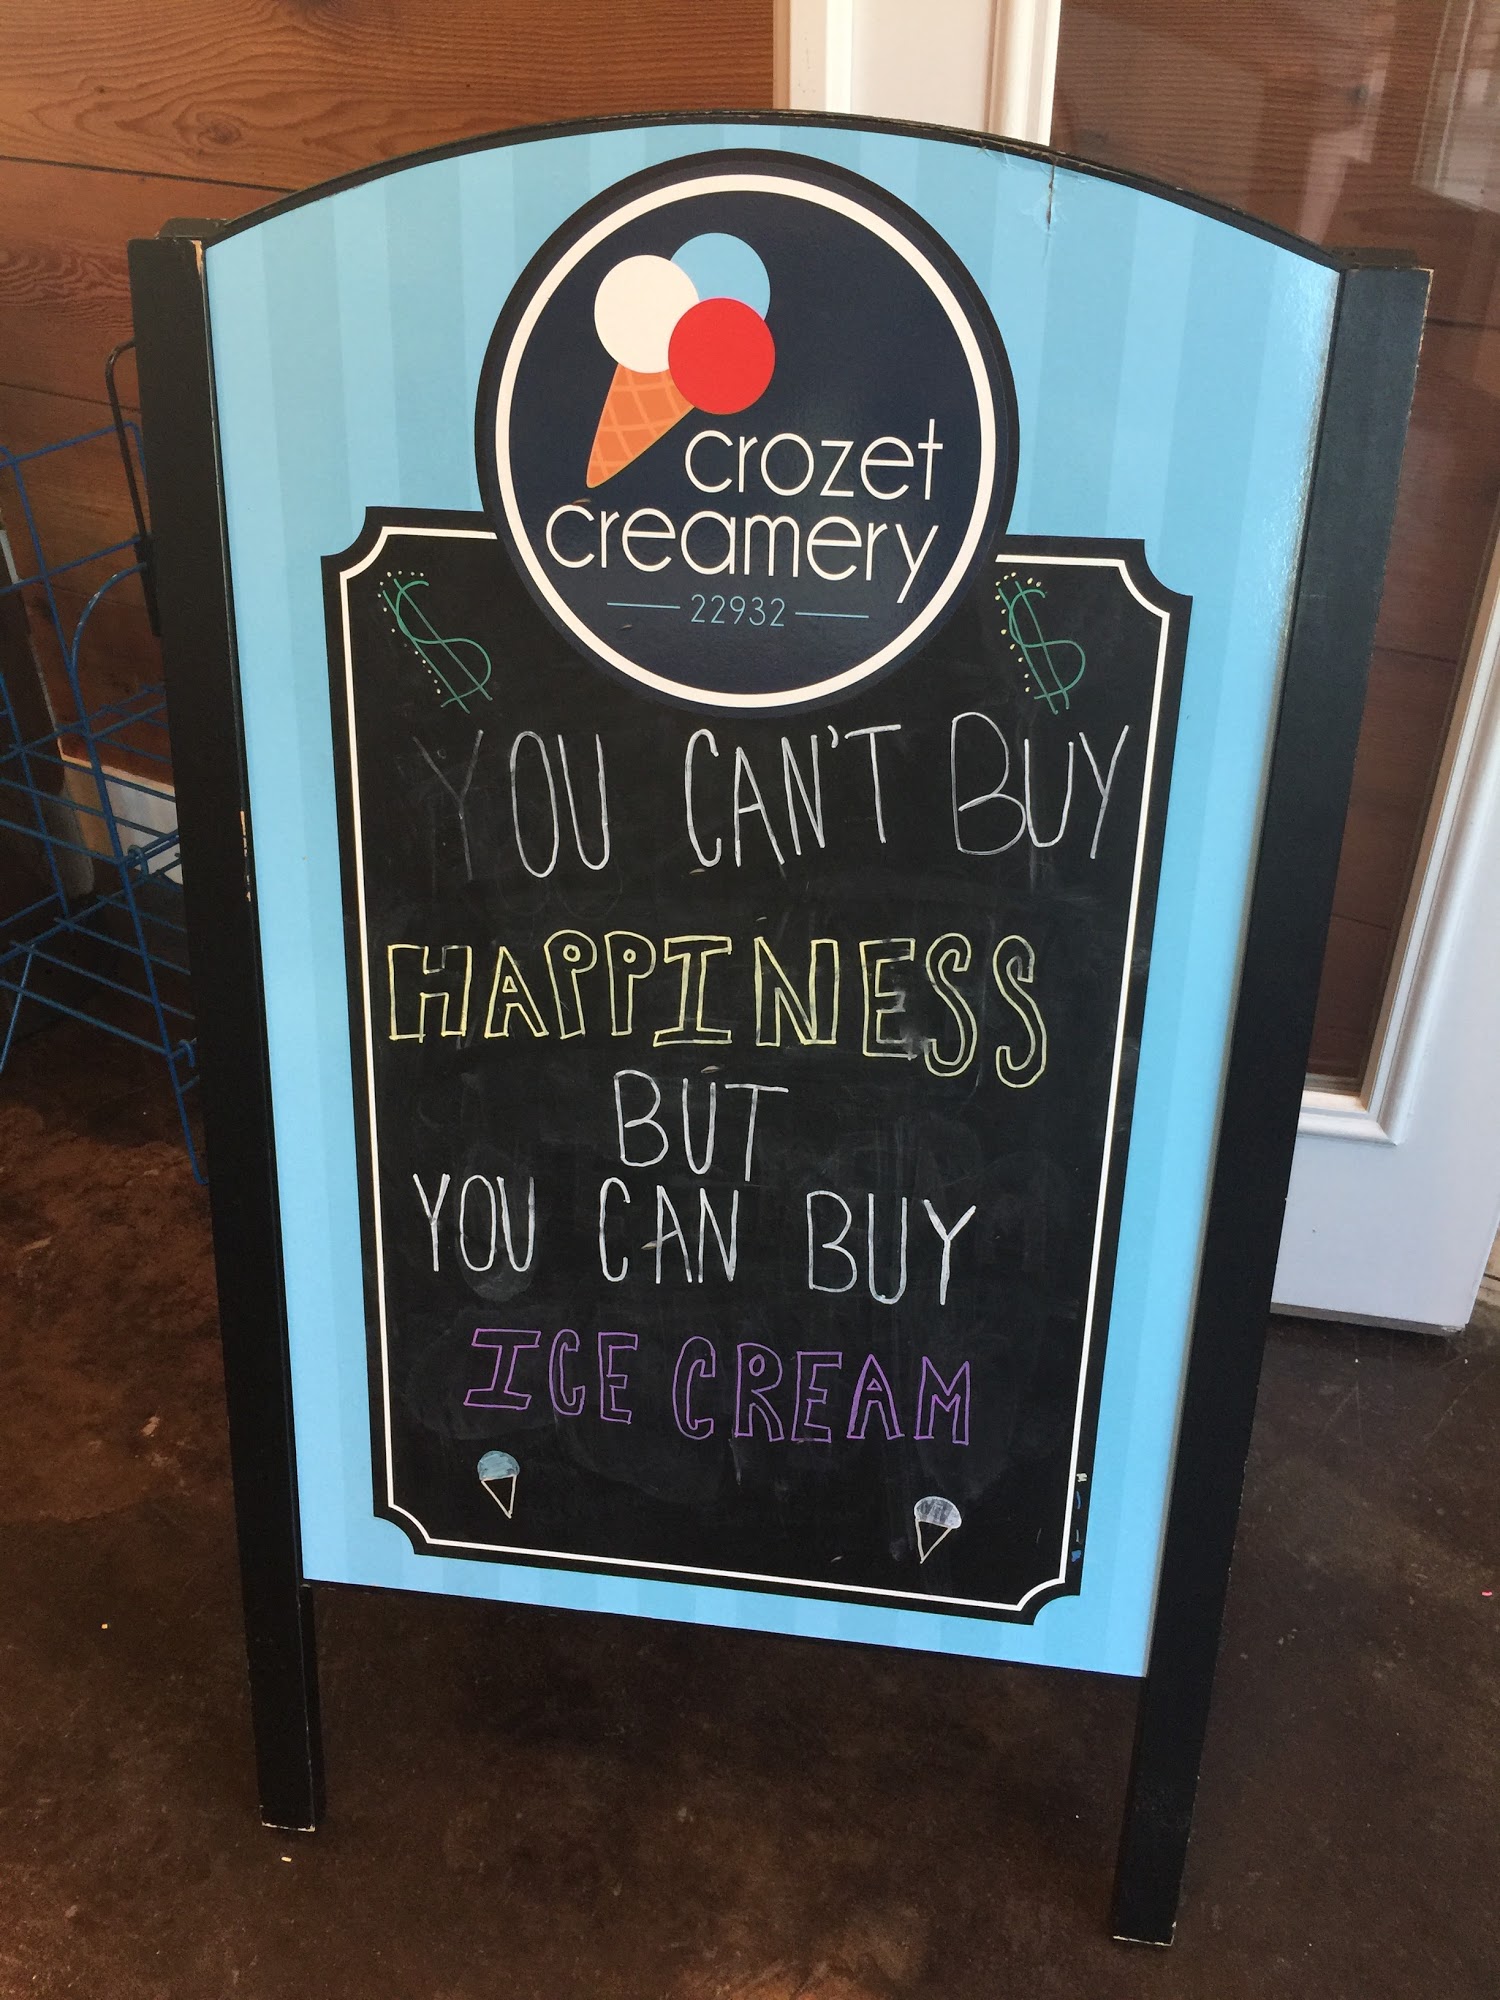 crozet
creamery
22932
$ $
YOU CAN'T BUY
HAPPINESS
BUT
YOU CAN BUY
ICE CREAM